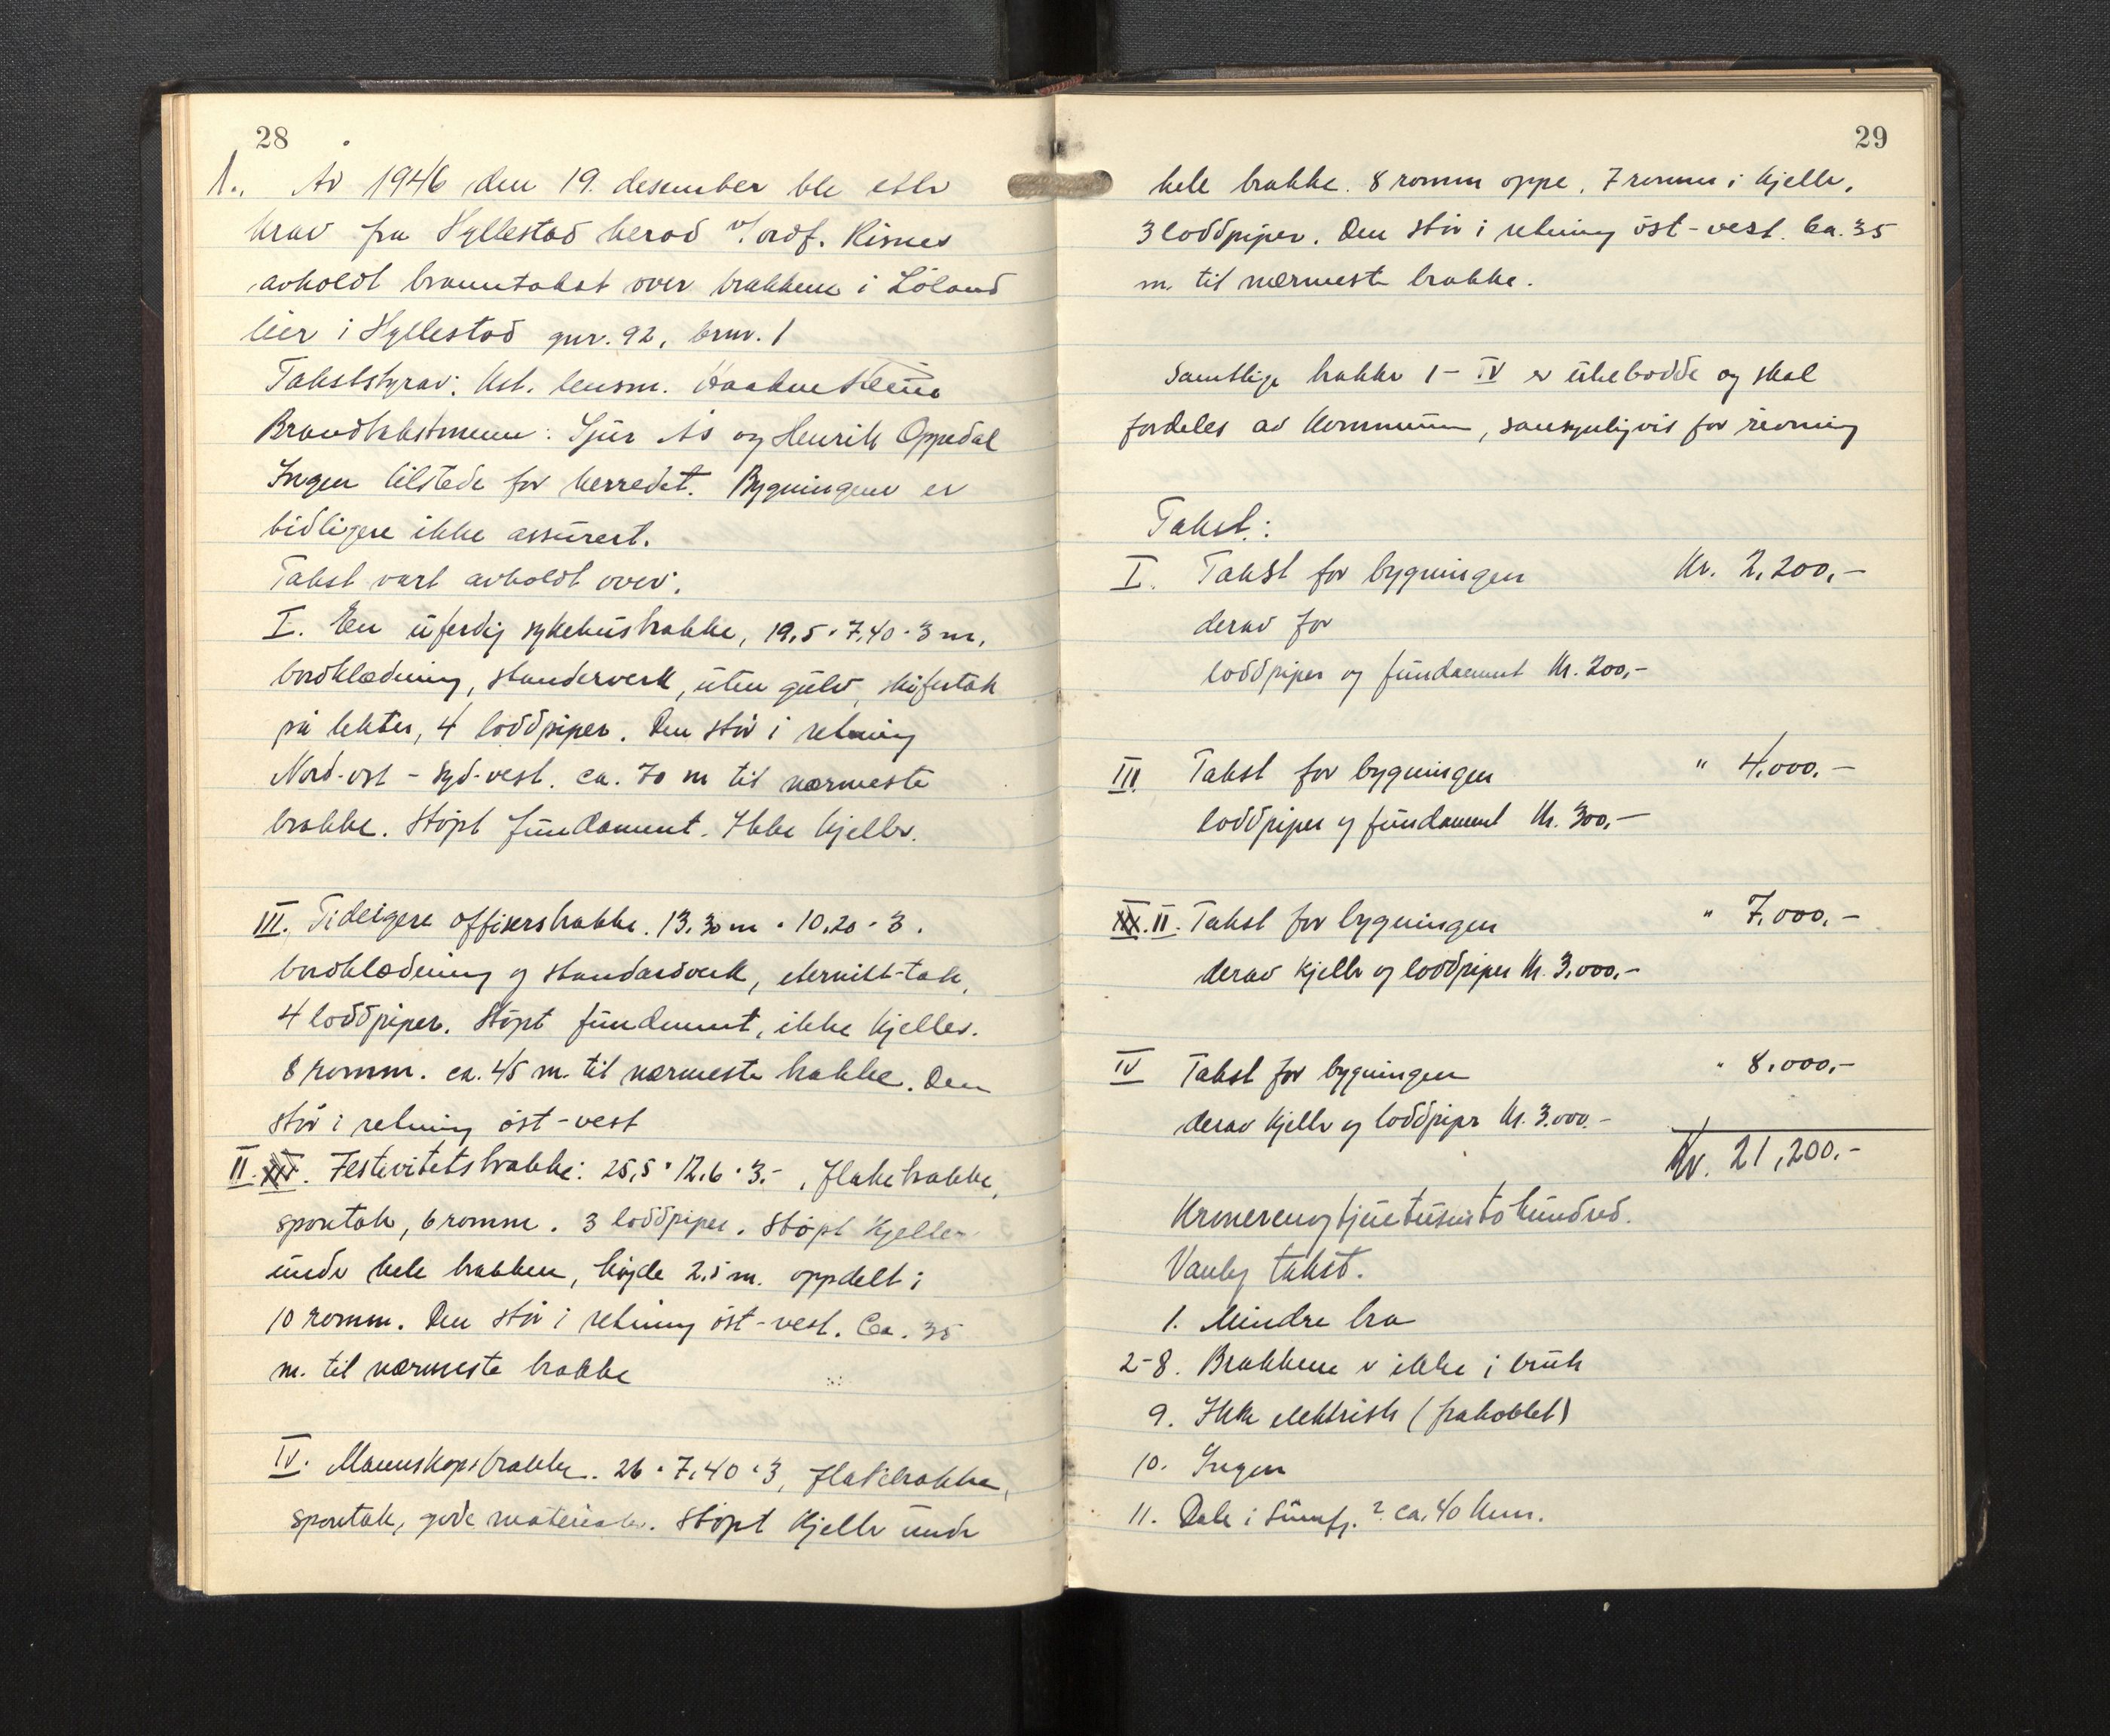 28
1., År 1946 den 19. desember ble etter
krav fra Hyllestad herad v/ ordf. Risnes
avholdt branntakst over brakkene i Löland
leir i Hyllestad gnr. 92, brnr. 1
Takststyrar: Kst. lensm. Haakon
Brandtakstmenn: Sjur Ås og Henrik Oppedal
Ingen tilstede for herredet. Bygningene er
tidligere ikke assurert.
Takst vart avholdt over:
I. En uferdig sykehusbrakke, 19,5 · 7,40 · 3 m,
bordklædning, standerverk, uten gulv, skifertak
på lekter, 4 loddpiper. Den står i retning
Nord-ost - Syd-vest. ca. 70 m til nærmeste
brakke. Støpt fundament. Ikke kjeller.
III. Tideigere offisersbrakke. 13,30 m · 10,20 · 3.
bordklædning og standardverk, eternitt-tak,
4 loddpiper. Støpt fundament, ikke kjeller.
8 romm. ca. 45 m. til nærmeste brakke. Den
står i retning öst-vest
II. Festivitetsbrakke: 25,5 · 12,6 · 3.-, flakebrakke,
spontak, 6 romm. 3 loddpiper. Støpt kjeller
under hele brakken, høyde 2,5 m. oppdelt i
10 romm. Den står i retning öst-vest. Ca. 35
m. til nærmeste brakke
IV. Mannskapsbrakke. 26 · 7,40 · 3, flakebrakke,
spontak, gode materialer. Støpt kjeller under
29
hele brakke. 8 romm oppe, 7 romm i kjeller,
3 loddpiper. Den står i retning öst-vest. Ca. 35
m. til nærmeste brakke.
Samtlige brakker I - IV er ubebodde og skal
fordeles av kommunen, sansynligvis for rivning
Takst:
I. Takst for bygningen Kr. 2,200,-
derav for
loddpiper og fundament Kr. 200,-
III Takst for bygningen " 4.000.-
loddpiper og fundament Kr. 300,-
II. Takst for bygningen " 7.000.-
derav kjeller og loddpiper Kr. 3.000,-
IV Takst for bygningen " 8.000,-
derav kjeller og loddpiper Kr. 3.000.-
Kr. 21,200.-
Kronerenogtjuetusentohundred.
Vanlig takst.
1. Mindre bra
2-8. Brakkene er ikke i bruk
9. Ikke elektrisk (frakoblet)
10. Ingen
11. Dale i Sunnfj. ? ca. 40 km.